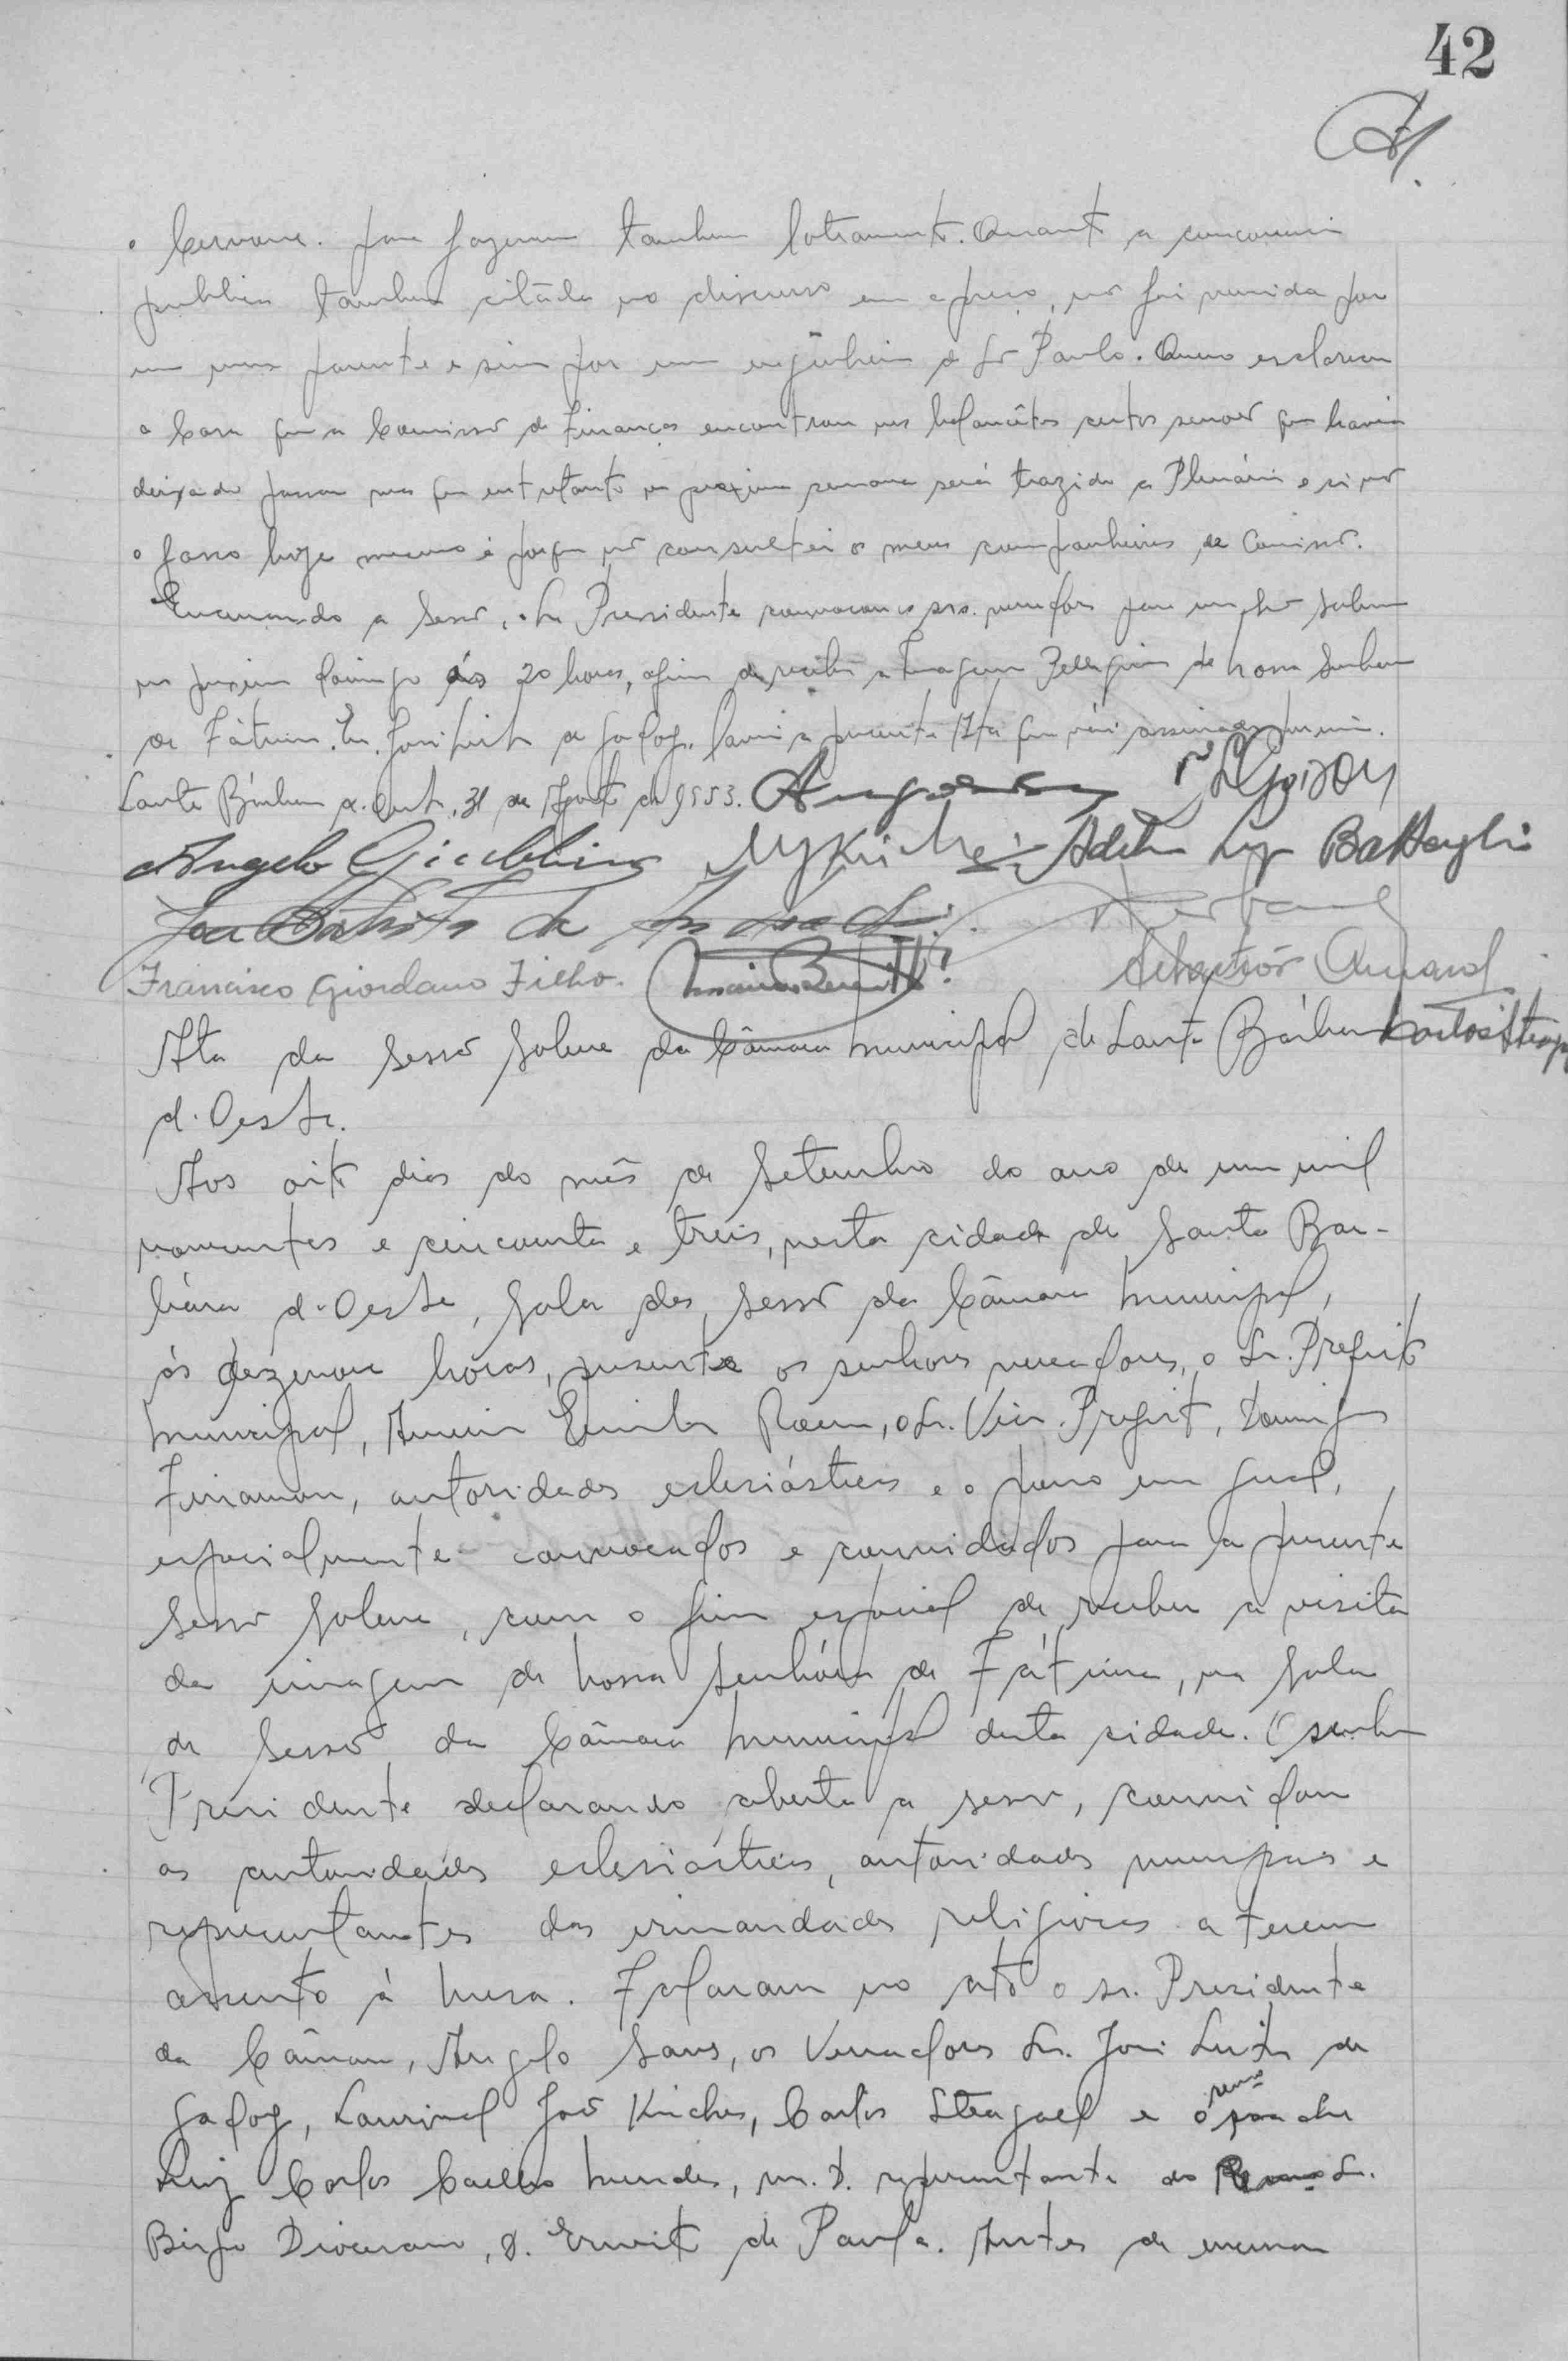 42
Cervone. para fazerem tambem loteamento. Quanto a concorrencia
publica tambem citada no discurso em apreço, não foi vencida por
um meu parente e sim por um engenheiro de S. Paulo. Quero esclarecer
a Casa que a Comissão de Finanças encontrou nos balancêtes certos senões que havia
deixado passar mas que entretanto na proxima semana será trazido a Plenário e si não
o faço hoje mesmo é porque não consultei os meus companheiros de Comissão.
Encerrando a Sessão, o Sr. Presidente convocou os srs. vereadores para uma Sessão Solene
no proximo domingo ás 20 horas, afim de receber a Imagem Peregrina de Nossa Senhora
de Fátima. Eu, José Luiz de Godoy, lavrei a presente Ata que vai assinada por mim.
Santa Bárbara d'Oeste, 31 de Agosto de 1953.
Angelo Giubbina Adelmo Luiz Battaglia
João Batista de
Francisco Giordano Filho.
Ata da Sessão Solene da Câmara Municipal de Santa Bárbara Carlos Steagall
d'Oeste.
Aos oito dias do mês de Setembro do ano de um mil
novecentos e cincoenta e treis, nesta cidade de Santa Bar-
bára d'Oeste, Sala das Sessões da Câmara Municipal,
ás dezenove hóras, presente os senhores vereadores, o Sr. Prefeito
Municipal, Emilio Romi, o Sr. Vice-Prefeito, Domingos
Finamore, autoridades eclesiásticas e o povo em geral,
especialmente convocados e convidados para a presente
Sessão Solene, com o fim especial de receber a visita
da imagem de Nossa Senhóra de Fátima, na Sala
de Sessão da Câmara Municipal desta cidade. O senhor
Presidente declarando aberta a sessão, convidou
as autoridades eclesiásticas, autoridades municipais e
representantes das irmandades religiosas a terem
assento à Mesa. Falaram no ato o sr. Presidente
da Câmara, Angelo Sans, os Vereadores Srs. José Luiz de
Godoy, Laurival João Kirche, Carlos Steagall e o revmo padre
Luiz Carlos Coelho Mendes, m. D. representante do Revmo Sr.
Bispo Diocesano, D. Ernesto de Paula. Antes de encerrar